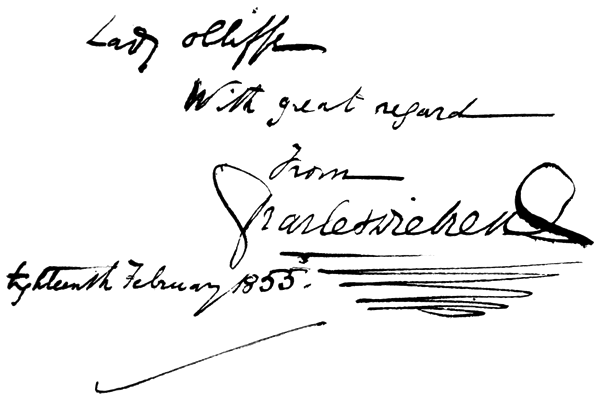 Lady Olliffe
With great regard
From
Charles Dickens
Eighteenth February 1855.